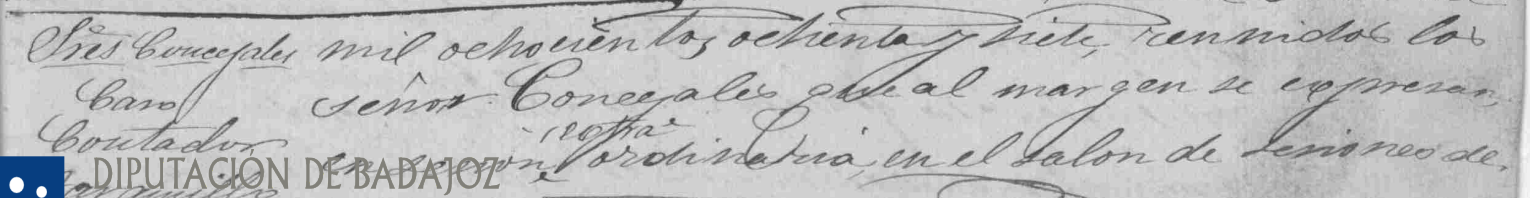 Sres Concejales mil ochocientos ochenta y siete, reunidos los
Caro señor Concejales que al margen se expresan,
Contador en sesion, ordinaria, en el salon de sesiones de
DIPUTACIÓN DE BADAJOZ